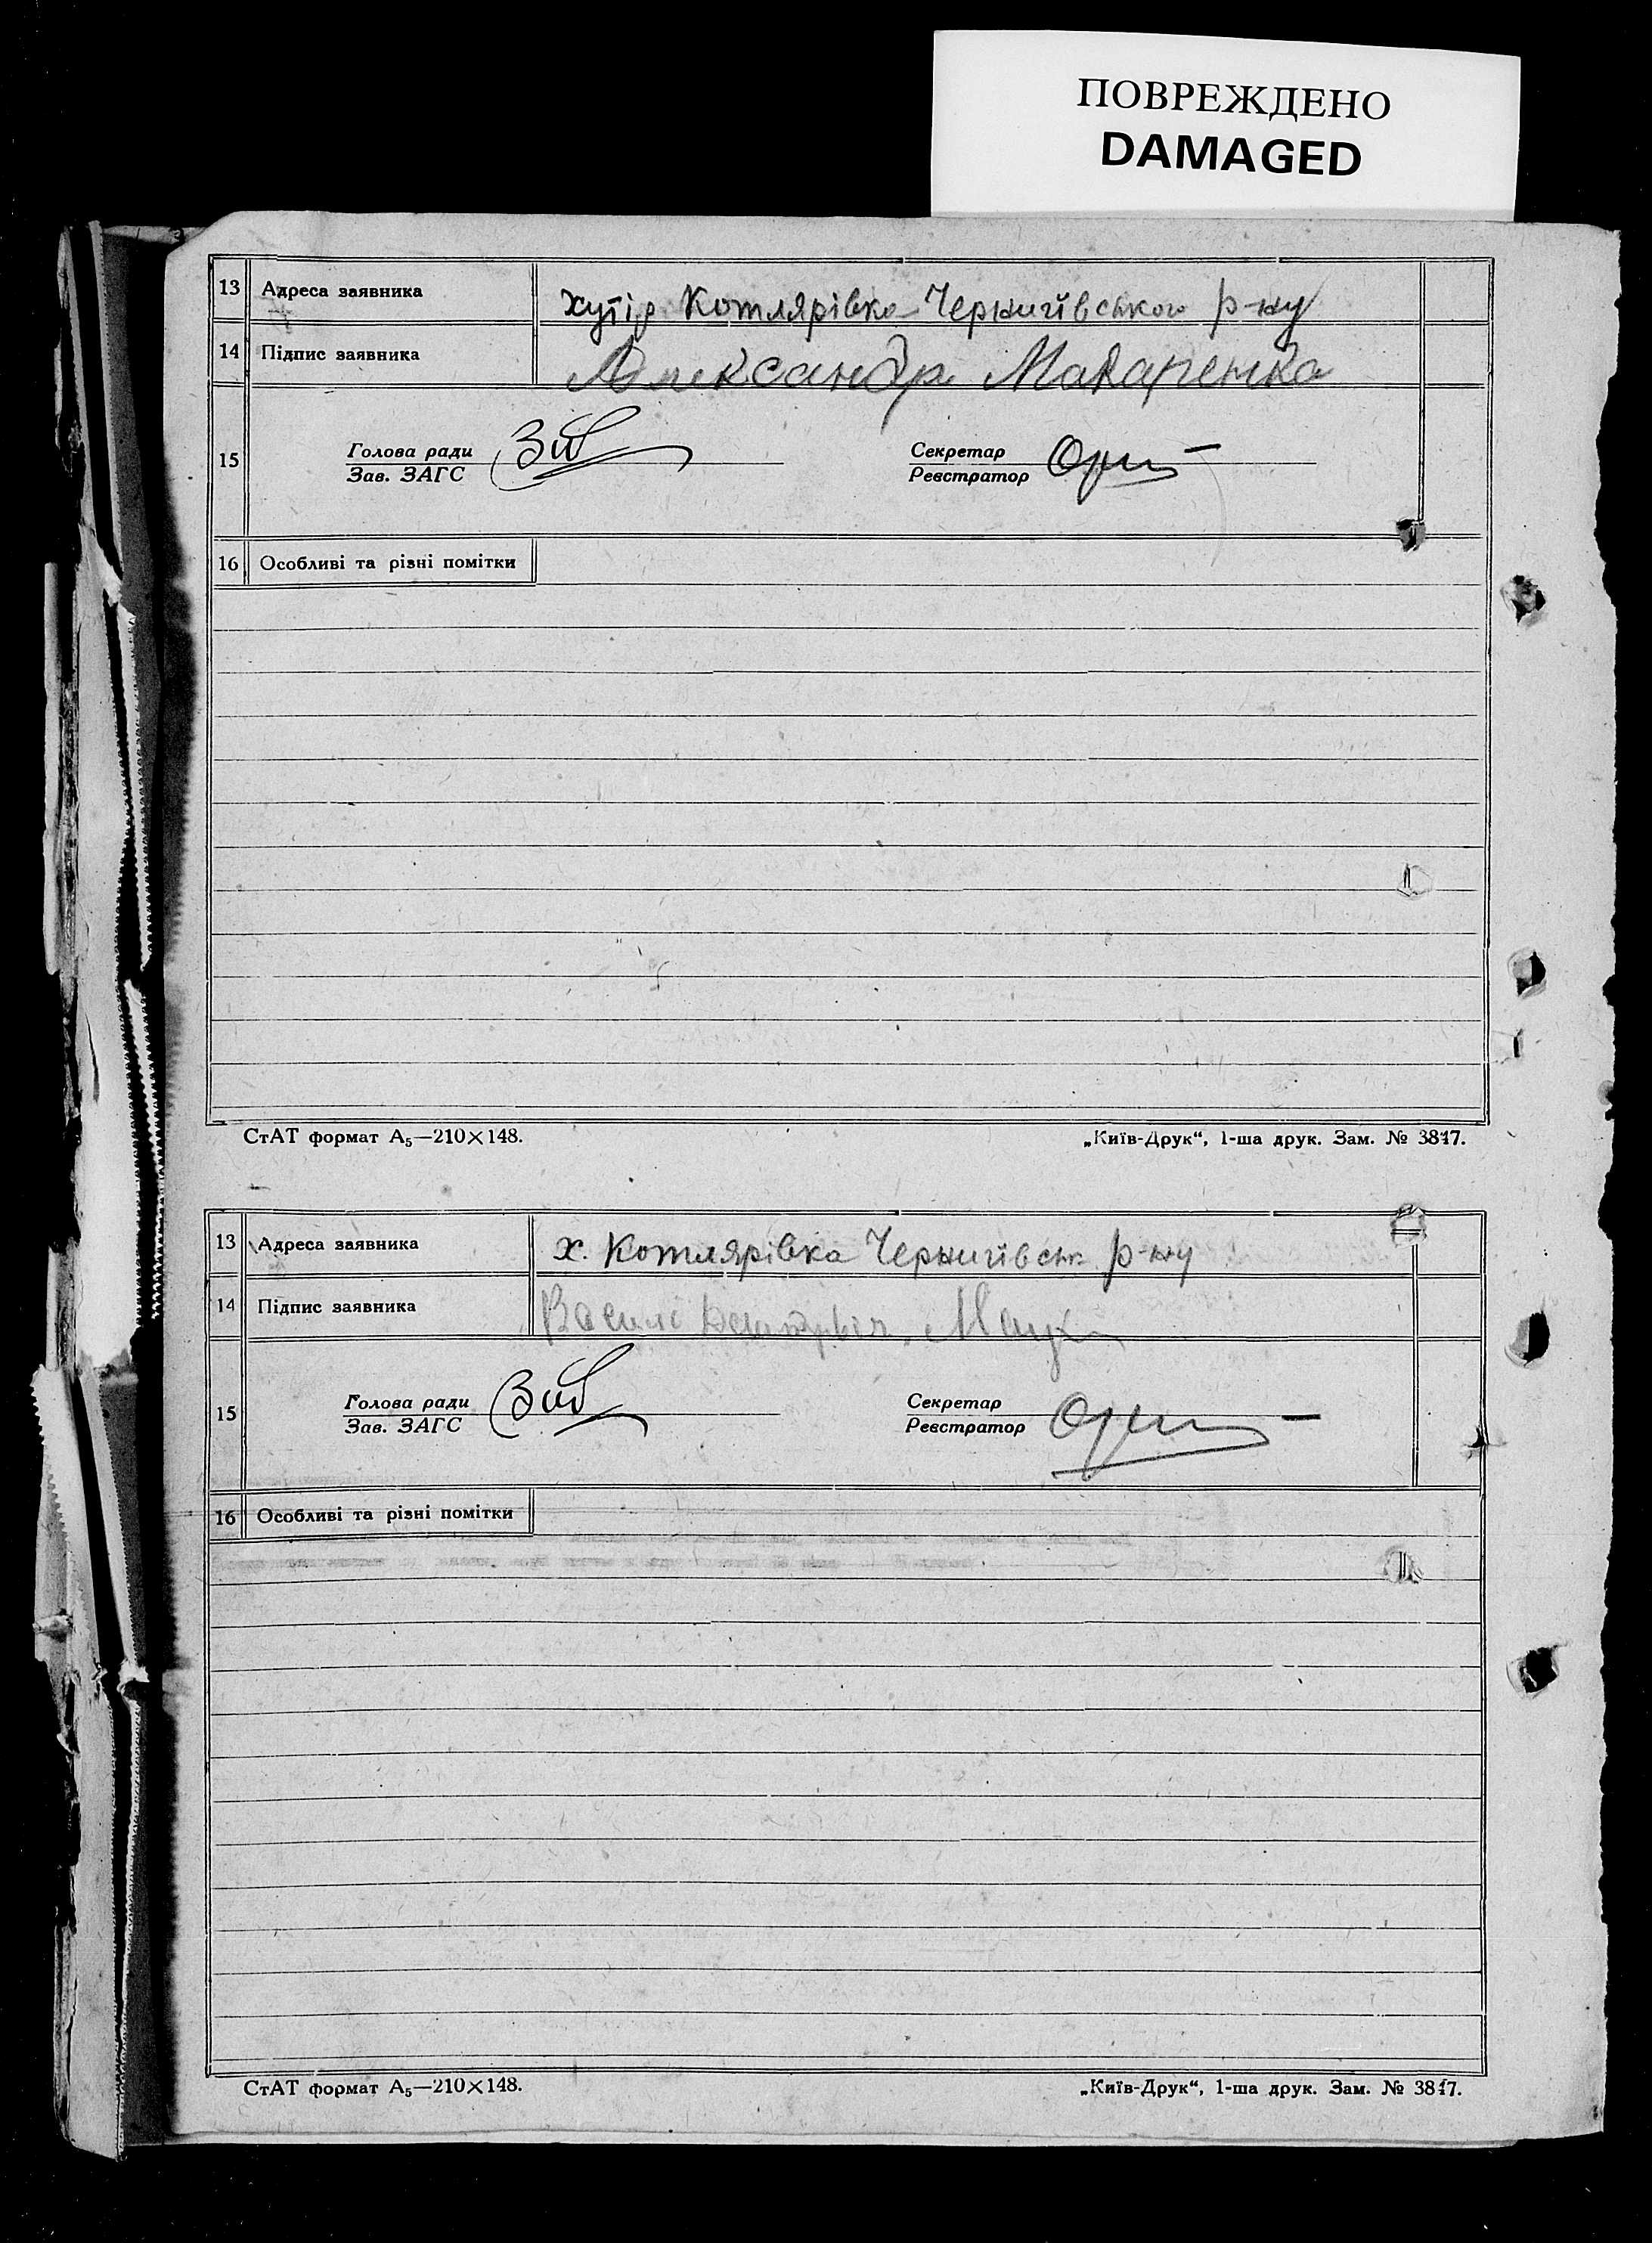 ПОВРЕЖДЕНО
DAMAGED
13 Адреса заявника хутір Котлярівка Чернигівського р-ну
14 Підпис заявника Александр Макаренко
15 Голова ради Секретар
Зав. ЗАГС Реєстратор
16 Особливі та різні помітки
СтАТ формат А₅—210×148. „Київ-Друк“, 1-ша друк. Зам. № 3817.
13 Адреса заявника х. Котлярівка Чернигівськ. р-ну
14 Підпис заявника Василі
15 Голова ради Секретар
Зав. ЗАГС Реєстратор
16 Особливі та різні помітки
СтАТ формат А₅—210×148. „Київ-Друк“, 1-ша друк. Зам. № 3817.